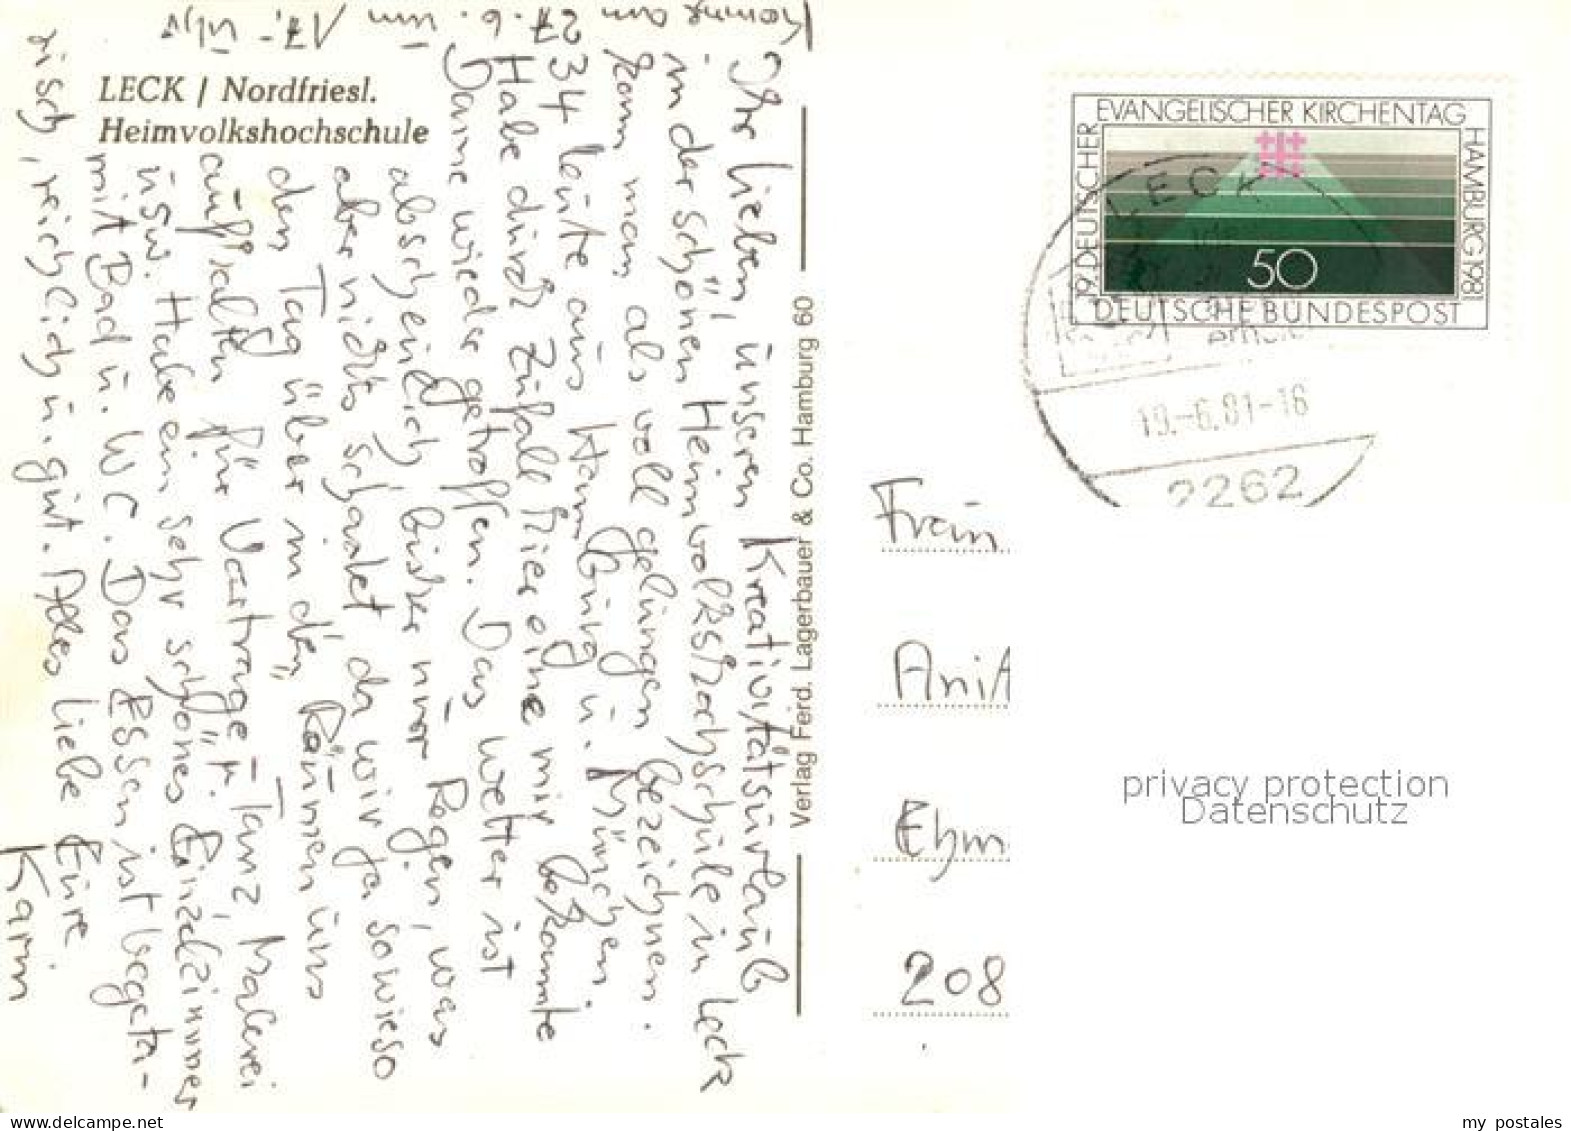 LECK / Nordfriesl.
Heimvolkshochschule
Ihr lieben, unseren Kreativitätsurlaub
in der schönen Heimvolkshochschule in Leck
kann man als voll gelungen bezeichnen.
34 leute aus Hamburg u. München.
Habe durch Zufall hier eine mir bekannte
Dame wieder getroffen. Das Wetter ist
abscheulich bisher nur Regen, was
aber nichts schadet da wir ja sowieso
den Tag über in den Räumen uns
aufhalten für Vorträge, Tanz, Malerei
usw. Habe ein sehr schönes Einzelzimmer
mit Bad u. WC. Das Essen ist vegeta-
risch, reichlich u. gut. Alles liebe Eure
Karin
Komme am 27.6. um 17,- Uhr
Verlag Ferd. Lagerbauer & Co. Hamburg 60
19. DEUTSCHER
EVANGELISCHER KIRCHENTAG
HAMBURG 1981
50
DEUTSCHE BUNDESPOST
LECK
19.-6.81-16
2262
Frau
Anit
Ehm
208
privacy protection
Datenschutz
my postales